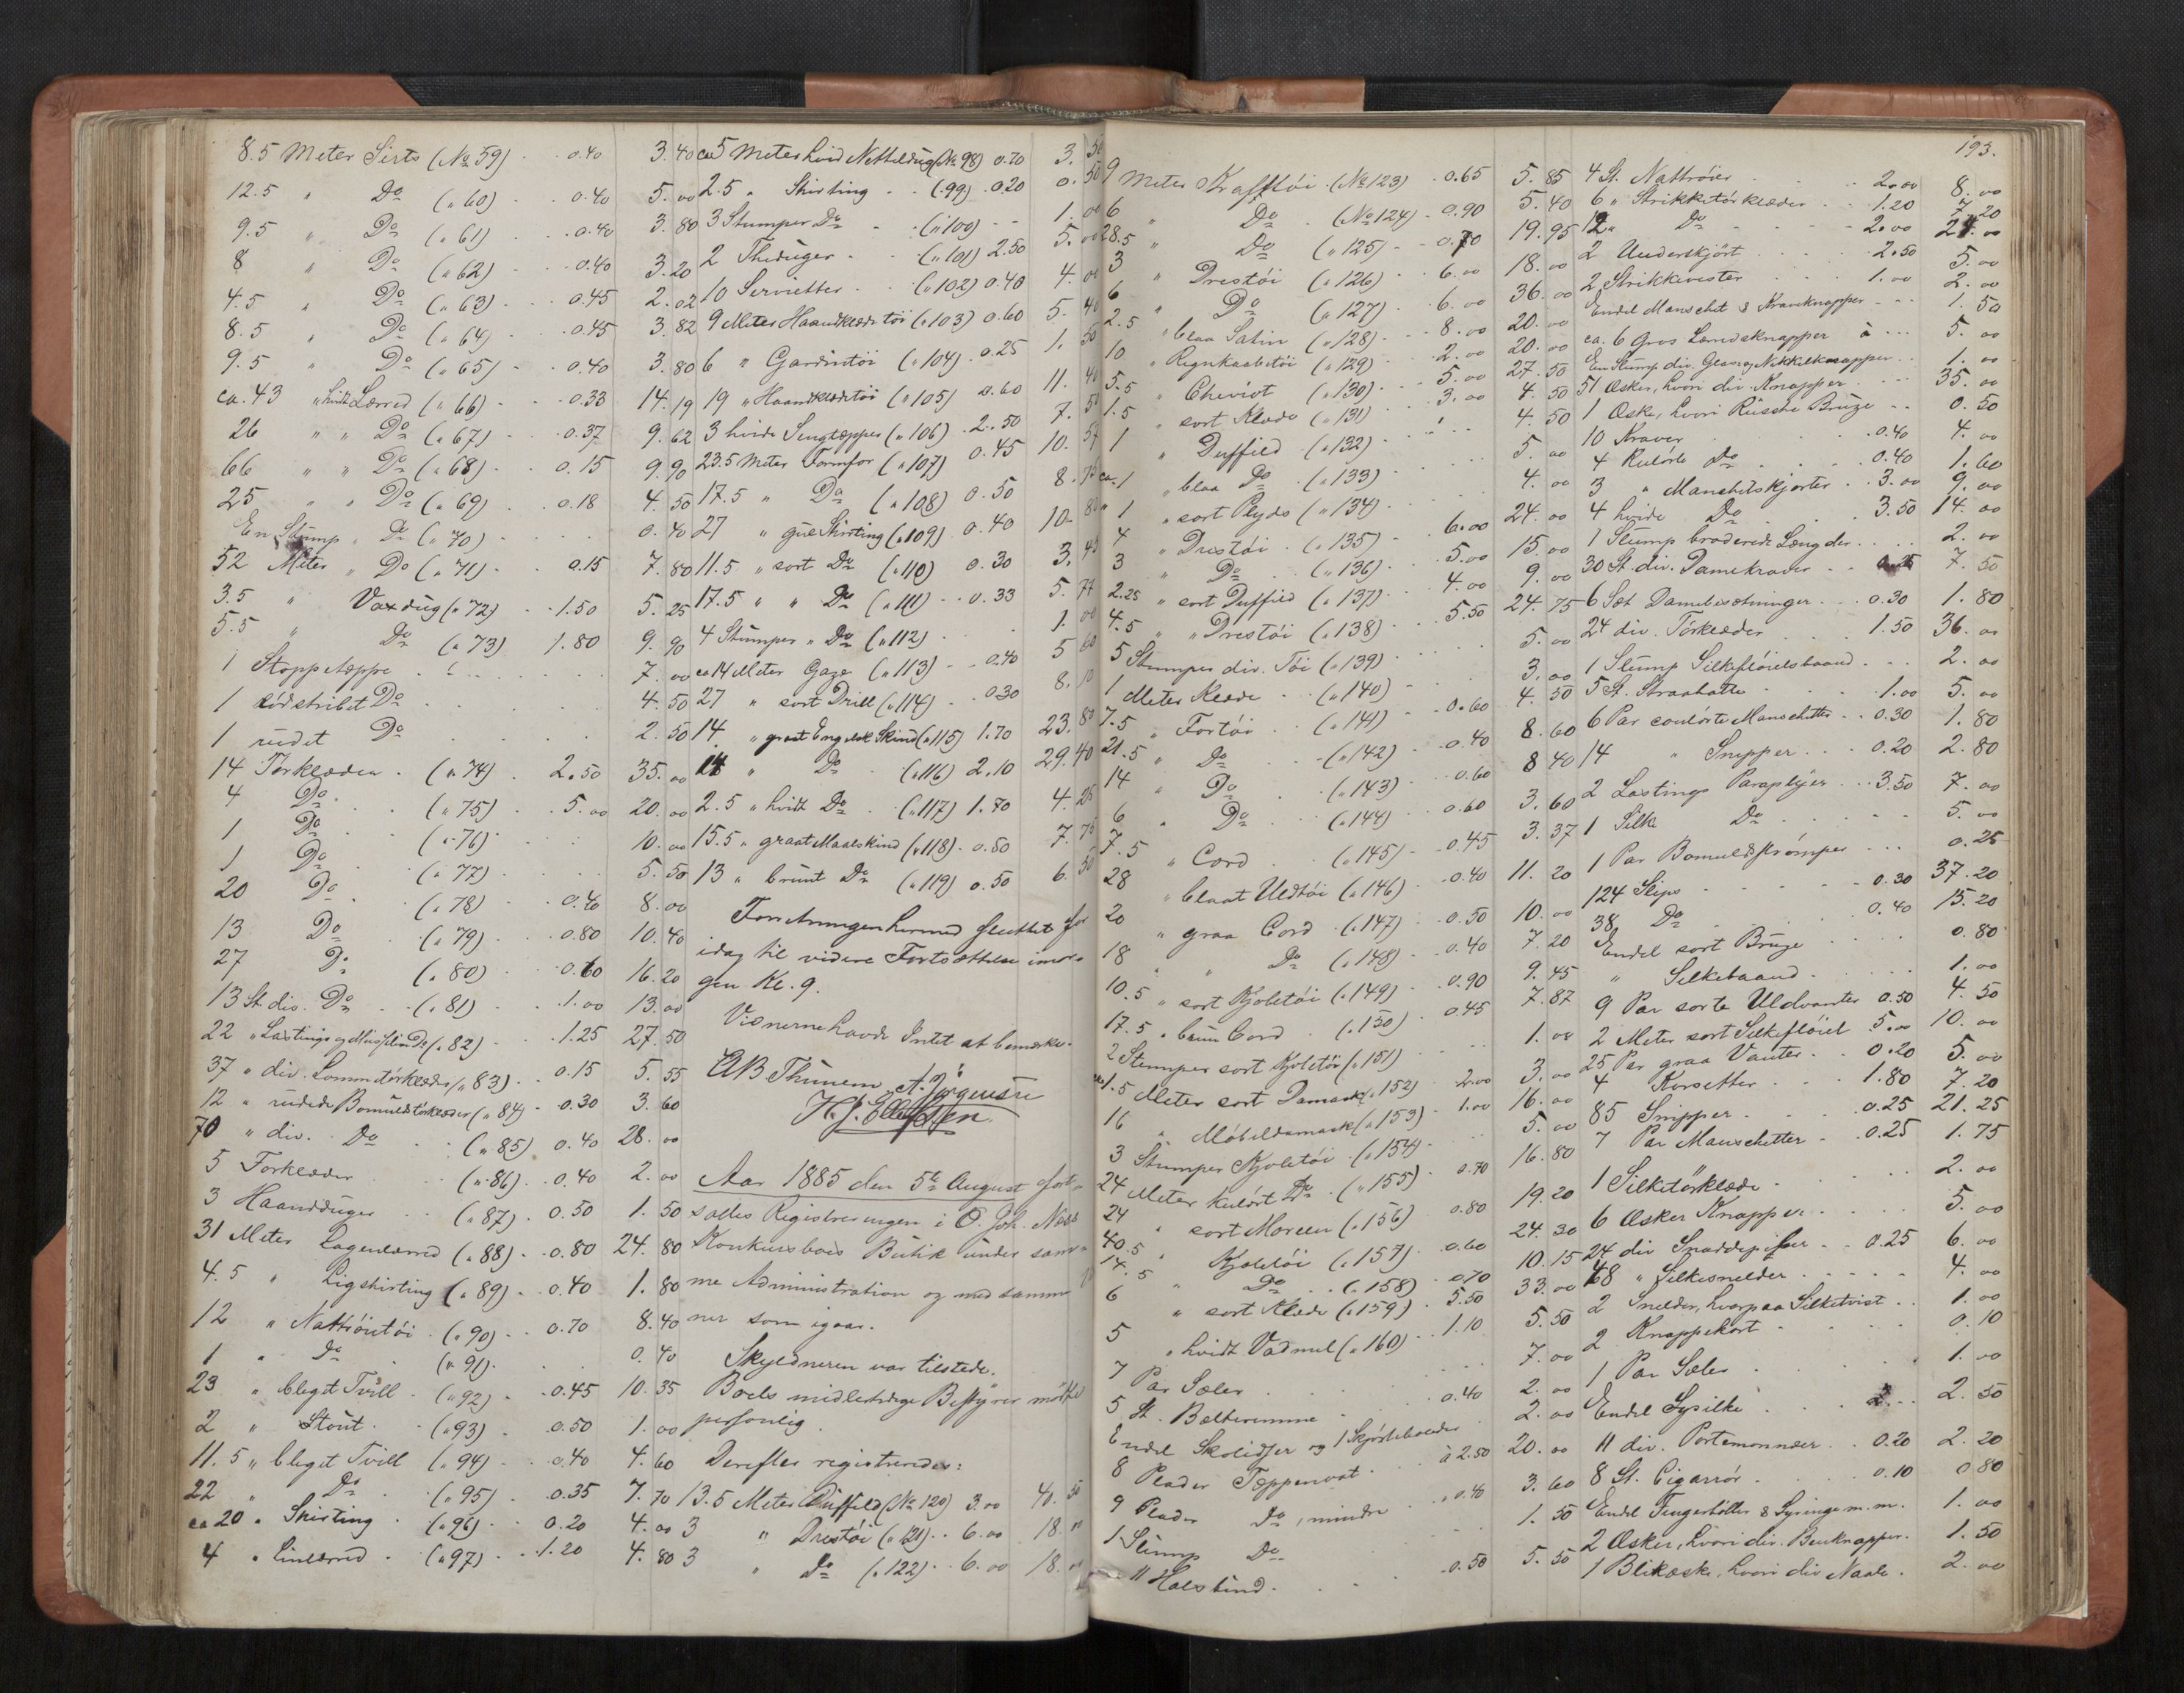 8.5 Meter Sirts (No 59) 0.40 3.40
12.5 " Do (" 60) 0.40 5.00
9.5 " Do (" 61) 0.40 3.80
8 " Do (" 62) 0.40 3.20
4.5 " Do (" 63) 0.45 2.02
8.5 " Do (" 64) 0.45 3.82
9.5 " Do (" 65) 0.40 3.80
ca. 43 " hvidt Lærred (" 66) 0.33 14.19
26 " " Do (" 67) 0.37 9.62
66 " " Do (" 68) 0.15 9.90
25 " " Do (" 69) 0.18 4.50
En Stump " Do (" 70) 0.40
52 Meter " Do (" 71) 0.15 7.80
3.5 " Voxdug (" 72) 1.50 5.25
5.5 " Do (" 73) 1.80 9.90
1 Stoppetæppe 7.00
1 rødstribet Do 4.50
1 rudet Do 2.50
14 Tørklæder (" 74) 2.50 35.00
4 Do (" 75) 5.00 20.00
1 Do (" 76) 10.00
1 Do (" 77) 5.50
20 Do (" 78) 0.40 8.00
13 Do (" 79) 0.80 10.40
27 Do (" 80) 0.60 16.20
13 St. div. Do (" 81) 1.00 13.00
22 " Lastings og Musselin Do (" 82) 1.25 27.50
37 " div. Lommetørklæder (" 83) 0.15 5.55
12 " rudede Bomuldstørklæder (" 84) 0.30 3.60
70 " div. Do (" 85) 0.40 28.00
5 Forklæder (" 86) 0.40 2.00
3 Haandduger (" 87) 0.50 1.50
31 Meter Lagenlærred (" 88) 0.80 24.80
4.5 " Ligskirting (" 89) 0.40 1.80
12 " Nattrøietøi (" 90) 0.70 8.40
1 " Do (" 91) 0.40
23 " bleget Tvill (" 92) 0.45 10.35
2 " Stout (" 93) 0.50 1.00
11.5 " bleget Tvill (" 94) 0.40 4.60
22 " Do (" 95) 0.35 7.70
ca 20 " Skirting (" 96) 0.20 4.00
4 " Linlærred (" 97) 1.20 4.80
ca 5 Meter hvid Netteldug (No 98) 0.70 3.50
2.5 " Skirting (" 99) 0.20 0.50
3 Stumper Do (" 100) 1.00
2 Theduger (" 101) 2.50 5.00
10 Servietter (" 102) 0.40 4.00
9 Meter Haandklædetøi (" 103) 0.60 5.40
6 " Gardintøi (" 104) 0.25 1.50
19 " Haandklædetøi (" 105) 0.60 11.40
3 hvide Sengtæpper (" 106) 2.50 7.50
23.5 Meter Formfor (" 107) 0.45 10.57
17.5 " Do (" 108) 0.50 8.75
27 " gul Skirting (" 109) 0.40 10.80
11.5 " sort Do (" 110) 0.30 3.45
17.5 " " Do (" 111) 0.33 5.77
4 Stumper " Do (" 112) 1.00
ca 14 Meter Gaze (" 113) 0.40 5.60
27 " sort Drill (" 114) 0.30 8.10
14 " graat Engelsk Skind (" 115) 1.70 23.80
14 " Do (" 116) 2.10 29.40
2.5 " hvidt Do (" 117) 1.70 4.25
15.5 " graat Maalskind (" 118) 0.50 7.75
13 " brunt Do (" 119) 0.50 6.50
Forretningen hermed sluttet for
idag til videre Fortsættelse imor-
gen Kl. 9.
Vidnerne havde Intet at bemærke.
A. Jørgensen
H. J. Ellefsen
Aar 1885 den 5te August fort-
sattes Registreringen i O. Joh. Næss
Konkursbos Butik under sam-
me Administration og med samme
ner som igaar.
Skyldneren var tilstede.
Boets midlertidige Bestyrer mødte
personlig.
Derefter registreredes:
13.5 Meter Duffeld (No 120) 3.00 40.50
3 " Drestøi (" 121) 6.00 18.00
3 " Do (" 122) 6.00 18.00
193.
9 Meter Krafttøi (No 123) 0.65 5.85
6 " Do (No 124) 0.90 5.40
28.5 " Do (" 125) 0.70 19.95
3 " Drestøi (" 126) 6.00 18.00
6 " Do (" 127) 6.00 36.00
2.5 " blaa Satin (" 128) 8.00 20.00
10 " Regnkaabetøi (" 129) 2.00 20.00
5.5 " Cheviot (" 130) 5.00 27.50
1.5 " sort Klæde (" 131) 3.00 4.50
1 " Duffeld (" 132) 4.50
ca. 1 " blaa Do (" 133) 5.00
" 1 " sort Plyds (" 134) 4.00
4 " Drestøi (" 135) 6.00 24.00
3 " Do (" 136) 5.00 15.00
2.25 " sort Duffeld (" 137) 4.00 9.00
4.5 " " Drestøi (" 138) 5.50 24.75
5 Stumper div. Tøi (" 139) 5.00
1 Meter Klæde (" 140) 3.00
7.5 " Fortøi (" 141) 0.60 4.50
21.5 " Do (" 142) 0.40 8.60
14 " Do (" 143) 0.60 8.40
6 " Do (" 144) 0.60 3.60
7.5 " Cord (" 145) 0.45 3.37
28 " blaat Uldtøi (" 146) 0.40 11.20
20 " graa Cord (" 147) 0.50 10.00
18 " " Do (" 148) 0.40 7.20
10.5 " sort Kjoletøi (" 149) 0.90 9.45
17.5 " brun Cord (" 150) 0.45 7.87
2 Stumper sort Kjoletøi (" 151) 1.00
1.5 Meter sort Damask (" 152) 2.00 3.00
16 " Møbeldamask (" 153) 1.00 16.00
3 Stumper Kjoletøi (" 154) 5.00
24 Meter kulørt Do (" 155) 0.70 16.80
24 " sort Moreen (" 156) 0.80 19.20
40.5 " Kjoletøi (" 157) 0.60 24.30
14.5 " Do (" 158) 0.70 10.15
6 " sort Klæde (" 159) 5.50 33.00
5 " hvidt Vadmel (" 160) 1.10 5.50
7 Par Seler 7.00
5 St. Bælteremme 0.40 2.00
Endel Skolidser og 1 Skjørteholder 2.00
8 Plader Tæppevat à 2.50 20.00
9 Plader Do, mindre " 0.40 3.60
1 Stump Do 1.50
11 Halsbind 0.50 5.50
4 St. Nattrøier 2.00 8.00
6 " Strikketørklæder 1.20 7.20
12 " Do 2.00 24.00
2 Underskjørt 2.50 5.00
2 Strikkevester 1.00 2.00
Endel Manschet & Kraveknapper 1.50
ca. 6 Gros Lærredsknapper à 5.00
En Stump div. Glas og Nikkelknapper 1.00
51 Æsker, hvori div. Knapper 35.00
1 Æske, hvori Rüsche Brüge 0.50
10 Kraver 0.40 4.00
4 Kulørte Do 0.40 1.60
3 " Manchetskjorter 3.00 9.00
4 hvide Do 3.50 14.00
1 Stump broderede Længder 2.00
30 St. div. Damekraver 0.25 7.50
6 Sæt Damebesætninger 0.30 1.80
24 div. Tørklæder 1.50 36.00
1 Stump Silkefløielsbaand 2.00
5 St. Straahatte 1.00 5.00
6 Par coulørte Manschetter 0.30 1.80
14 " Snipper 0.20 2.80
2 Lastings Paraplyer 3.50 7.00
1 Silke Do 5.00
1 Par Bomuldsstrømper 0.25
124 Slips 0.30 37.20
38 Do 0.40 15.20
Endel sort Brüge 0.80
" Silkebaand 1.00
9 Par sorte Uldvanter 0.50 4.50
2 Meter sort Silkefløiel 5.00 10.00
25 Par graa Vanter 0.20 5.00
4 Korsetter 1.80 7.20
85 Snipper 0.25 21.25
7 Par Manschetter 0.25 1.75
1 Silketørklæde 2.00
6 Æsker Knapper 5.00
24 div Snaddepiber 0.25 6.00
48 " Silkesnelder 4.00
2 Snelder, hvorpaa Silketvist 1.00
2 Knappekort 0.10
1 Par Seler 1.00
Endel Sysilke 2.50
11 div. Portemonnæer 0.20 2.20
8 St. Cigarrør 0.10 0.80
Endel Fingerbøller & Syringe m.m. 1.00
2 Æsker, hvori div. Benknapper 1.50
1 Blikæske, hvori div Naale 2.00